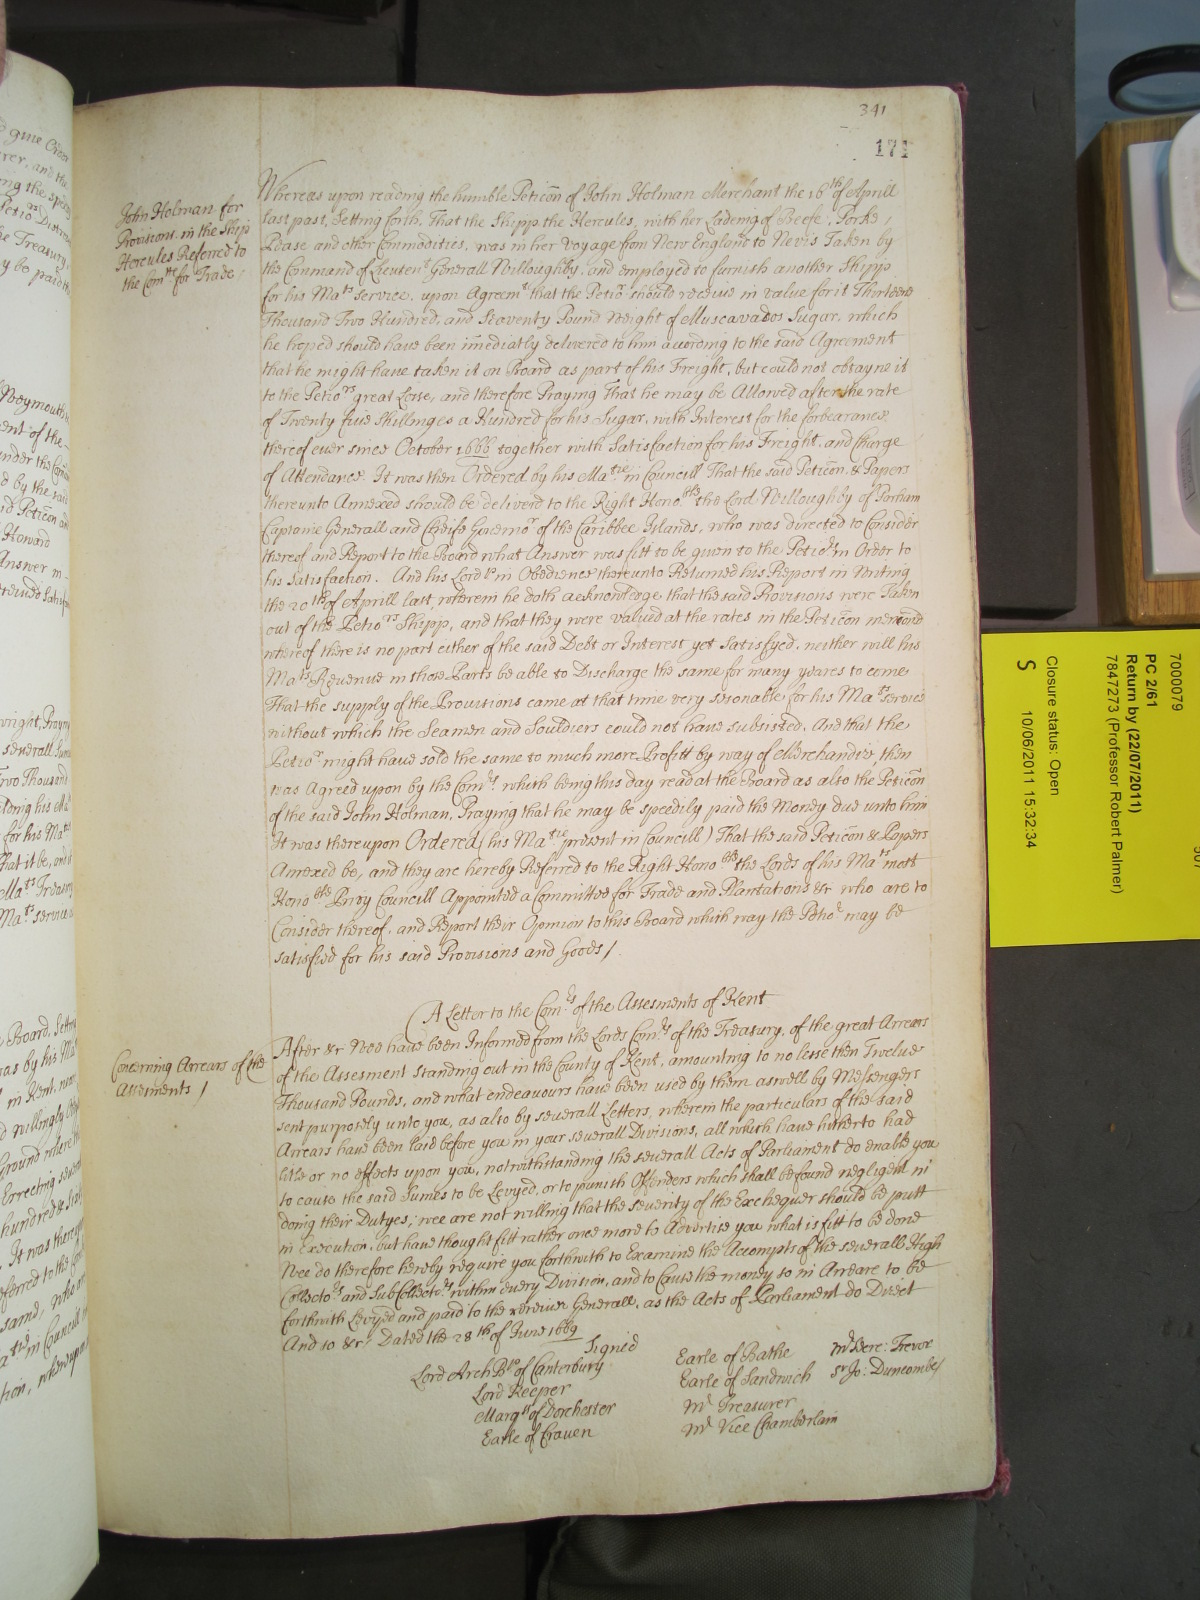 341
171
John Holman for
Provisions in the Ship
Hercules Referred to
the Comtee for Trade/
Whereas upon reading the humble Peticōn of John Holman Merchant the 16th of Aprill
last past, Setting forth, That the Shipp the Hercules, with her Ladeing of Beefe, Porke,
Pease and other Commodities, was in her Voyage from New England to Nevis Taken by
the Command of Lieutent Generall Willoughby, and employed to furnish another Shipp
for his Mats service, upon Agreemt that the Petior should receive in value for it Thirteene
Thousand Two Hundred, and Seaventy Pound Weight of Muscavados Sugar, which
he hoped should have been im̄ediatly delivered to him according to the said Agreement
that he might have taken it on Board as part of his Freight, but could not obtayne it
to the Petiors great Losse, and therefore Praying That he may be Allowed after the rate
of Twenty five Shillinges a Hundred for his Sugar, with Interest for the forbearance
thereof ever since October 1666 together with Satisfaction for his Freight, and Charge
of Attendance. It was then Ordered by his Matie in Councill That the said Peticōn, & Papers
thereunto Annexed should be deliverd to the Right Honoble the Lord Willoughby of Parham
Captaine Generall and Cheife Governor of the Caribbee Islands, who was directed to Consider
thereof and Report to the Board what Answer was fitt to be given to the Petior in Order to
his Satisfaction. And his Lordpp in Obedience thereunto Returned his Report in Writing
the 20th of Aprill last, wherein he doth acknowledge that the said Provisions were Taken
out of the Petiors Shipp, and that they were valued at the rates in the Peticōn menc̄ond
whereof there is no part either of the said Debt or Interest yet Satisfyed, neither will his
Mats Revenue in those Parts be able to Discharge the same for many yeares to come
That the supply of the Provisions came at that time very seasonable for his Mats Service
without which the Seamen and Souldiers could not have subsisted, And that the
Petior might have sold the same to much more Profitt by way of Merchandize, then
was Agreed upon by the Comrs which being this day read at the Board as also the Peticōn
of the said John Holman, Praying that he may be speedily paid the Money due unto him
It was thereupon Ordered (his Matie present in Councill) That the said Peticōn & Papers
Annexed be, and they are hereby Referred to the Right Honoble the Lords of his Mats most
Honoble Privy Councill Appointed a Committee for Trade and Plantations &c who are to
Consider thereof, and Report their Opinion to this Board which way the Petior may be
satisfied for his said Provisions and Goods/.
A Letter to the Comrs of the Assesments of Kent
Concerning Arrears of the
Assesments/
After &c Wee have been Informed from the Lords Comrs of the Treasury, of the great Arrears
of the Assesment standing out in the County of Kent, amounting to no lesse then Twelve
Thousand Pounds, and what endeavours have been used by them aswell by Messengers
sent purposely unto you, as also by severall Letters, wherein the particulars of the said
Arrears have been laid before you in your severall Divisions, all which have hitherto had
litle or no effects upon you, notwithstanding the severall Acts of Parliament do enable you
to cause the said Sumes to be Levyed, or to punish Offenders which shall be found negligent in
doing their Dutyes; wee are not willing that the severity of the Exchequer should be putt
in Execution, but have thought fitt rather once more to Advertise you what is fitt to be done
Wee do therefore hereby require you forthwith to Examine the Accompts of the severall High
Collectors and SubCollectors within every Division, and to Cause the money so in Arreare to be
forthwith Levyed and paid to the receiver Generall, as the Acts of Parliament do Direct
And so &c/ Dated the 28th of June 1669
Signed
Lord Arch Bpp of Canterbury
Lord Keeper
Marqs of Dorchester
Earle of Craven
Earle of Bathe
Earle of Sandwich
Mr Treasurer
Mr Vice Chamberlain
Mr Secre: Trevor
Sr Jo: Duncombe/
7000079
PC 2/61
Return by (22/07/2011)
7847273 (Professor Robert Palmer)
Closure status: Open
S 10/06/2011 15:32:34